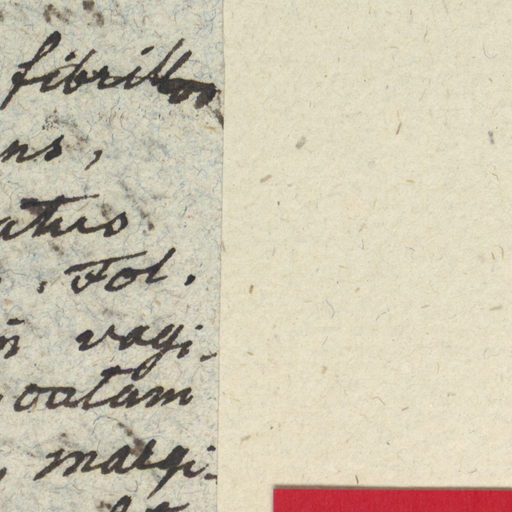 fibrillos
ns,
atus
. Fol.
vagi-
oatam
, margi-